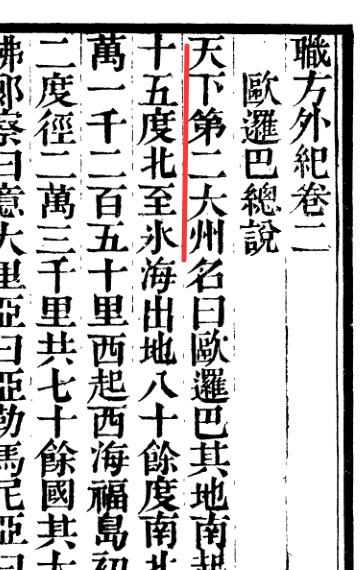 職方外紀卷二
歐邏巴總說
天下第二大州名曰歐邏巴其地南起
十五度北至氷海出地八十餘度南北
萬一千二百五十里西起西海福島初
二度徑二萬三千里共七十餘國其大
佛郎察曰意大里亞曰亞勒馬尼亞曰